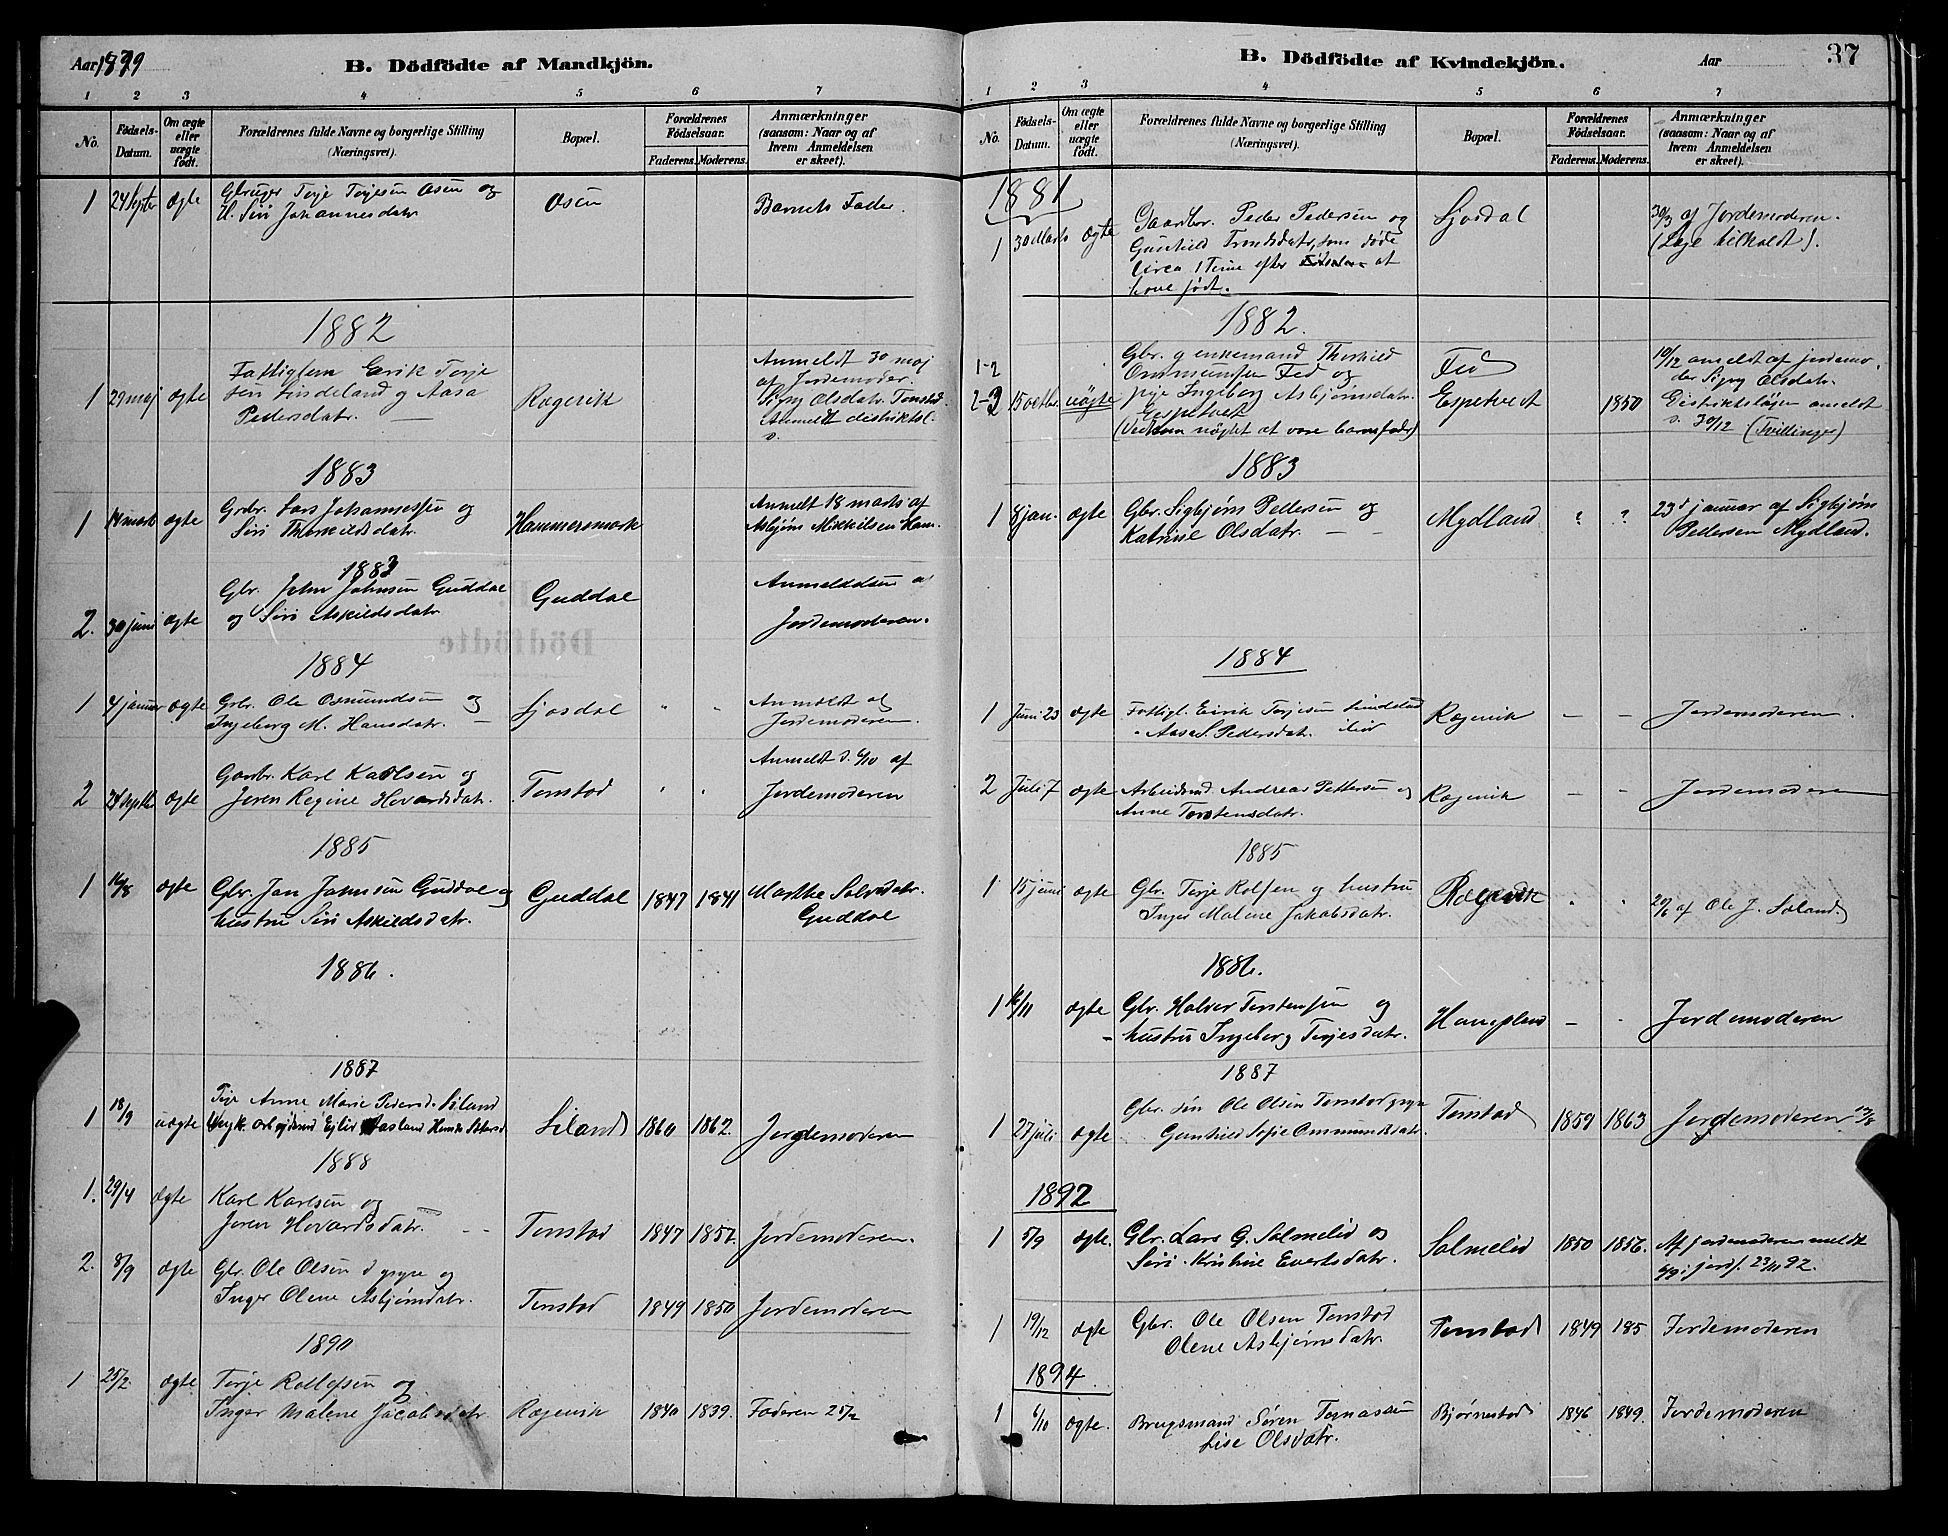 Aar 1879
B. Dödfödte af Mandkjön.
1 2 3 4 5 6 7
No.
Födsels-
Datum.
Om ægte
eller
uægte
født.
Forældrenes fulde Navne og borgerlige Stilling
(Næringsvei).
Bopæl.
Forældrenes
Fødselsaar.
Faderens. Moderens.
Anmærkninger
(saasom: Naar og af
hvem Anmeldelsen
er skeet).
1 24 Septbr ægte Gbruger Terje Terjesen Osen og Osen Barnets Fader.
H. Siri Johannesdatr
1882
1 29 maj ægte Fattiglem Erik Terje
sen Lindeland og Aasa Røgevik
Pedersdatr.
Anmeldt 30 maj
af Jordemoder
Sigry Olsdatr. Tonstad.
Anmeldt distriktsl.
1883
1 14 marts ægte Grbr. Lars Johannessen og Hammersmark Anmeldt 18 marts af
Siri Thorkildsdatr. Asbjørn Mikkelsen Ham.
1883
2. 30 juni ægte Gbr. John Johnsen Guddal Guddal Anmeldelsen a
og Siri Askildsdatr. Jordemoderen.
1884
1 4 januar ægte Grbr. Ole Osmundsen og Ljosdal " " Anmeldt af
Ingeborg M. Hansdatr. Jordemoderen.
2 24 Septbr ægte Garbr. Karl Karlsen og Tonstad " " Anmeldt d. 6/10 af
Joren Regine Hovardsdatr. Jordemoderen
1885
1 16/8 ægte Gbr. Jan Johnsen Guddal og Guddal 1847 1841 Marthe Salvesdatr.
hustru Siri Askildsdatr. Guddal
1886.
1887
1 18/9 uægte Pige Anne Marie Pedersd. Liland Liland 1860 1862. Jordemoderen
Ungk. arbejdsmd Ejlid Aasland
1888
1. 29/4 ægte Karl Karlsen og
Joren Hovardsdatr. Tonstad 1847 1857 Jordemoderen.
2. 8/9 ægte Gbr. Ole Olsen d yngre og
Inger Olene Asbjørnsdatr. Tonstad 1849 1850 Jordemoderen
1890
1 25/2 ægte Terje Rollefsen og
Inger Malene Jacobsdatr Røgevik 1840 1839. Faderen 25/2
B. Dödfödte af Kvindekjön.
Aar
37
1 2 3 4 5 6 7
No.
Födsels-
Datum.
Om ægte
eller
uægte
født.
Forældrenes fulde Navne og borgerlige Stilling
(Næringsvei).
Bopæl.
Forældrenes
Fødselsaar.
Faderens. Moderens.
Anmærkninger
(saasom: Naar og af
hvem Anmeldelsen
er skeet).
1881
1 30 Marts ægte Gaardbr. Peder Pedersen og Ljosdal 30/3 af Jordemoderen.
Gunhild Trondsdatr, som døde (Læge tilkaldt).
circa 1 Time efter at
have født.
1882.
1-2 Gbr. g enkemand Thorkild Fed 10/12 anmeldt af jordemo-
Ommundsen Fed og der Sigry Olsdatr.
2-3 15 octbr. uægte pige Ingeborg Asbjørnsdatr. Espetvedt 1850 Distriktslægen anmeldt
Espetvedt d. 30/12 (Tvillinger)
(Vedkom nægtet at være barnefader)
1883
1 8 jan. ægte Gbr. Sigbjørn Pedersen og Mydland ? ? 23d januar af Sigbjørn
Katrine Olsdatr. Pedersen Mydland.
1884
1 Juni 23 ægte Fattigl. Eirik Terjesen Lindeland Røgevik Jordemoderen.
Aasa S. Pedersdatr.
2 Juli 7 ægte Arbeidsmd. Andreas Pettersen og Røgevik Jordemoderen
Anne Torstensdatr.
1885
1 15 juni ægte Gbr. Terje Rolfsen og hustru Røgevik " " 20/6 af Ole J. Soland.
Inger Malene Jakobsdatr.
1886.
1 16/11 ægte Gbr. Halvor Torstensen og Haugland Jordemoderen
hustru Ingeborg Terjesdatr.
1887
1 27 juli ægte Gbr. søn Ole Olsen Tonstad yngre Tonstad 1859 1863 Jordemoderen
Gunhild Sofie Ommundsdatr.
1892
1 5/9 ægte. Gbr. Lars G. Salmelid og Salmelid 1850 1856. Af jordemoderen meldt
Siri Kristine Evertsdatr. 6/9 i jordf. 23/11 92.
1 19/12 ægte Gbr. Ole Olsen Tonstad Tonstad 1849 185 Jordemoderen
Olene Asbjørnsdatr.
1894
1 6/10 ægte. Brugsmand Søren Tomassen Bjørnestad 1846 1849. Jordemoderen
Lise Olsdatr.